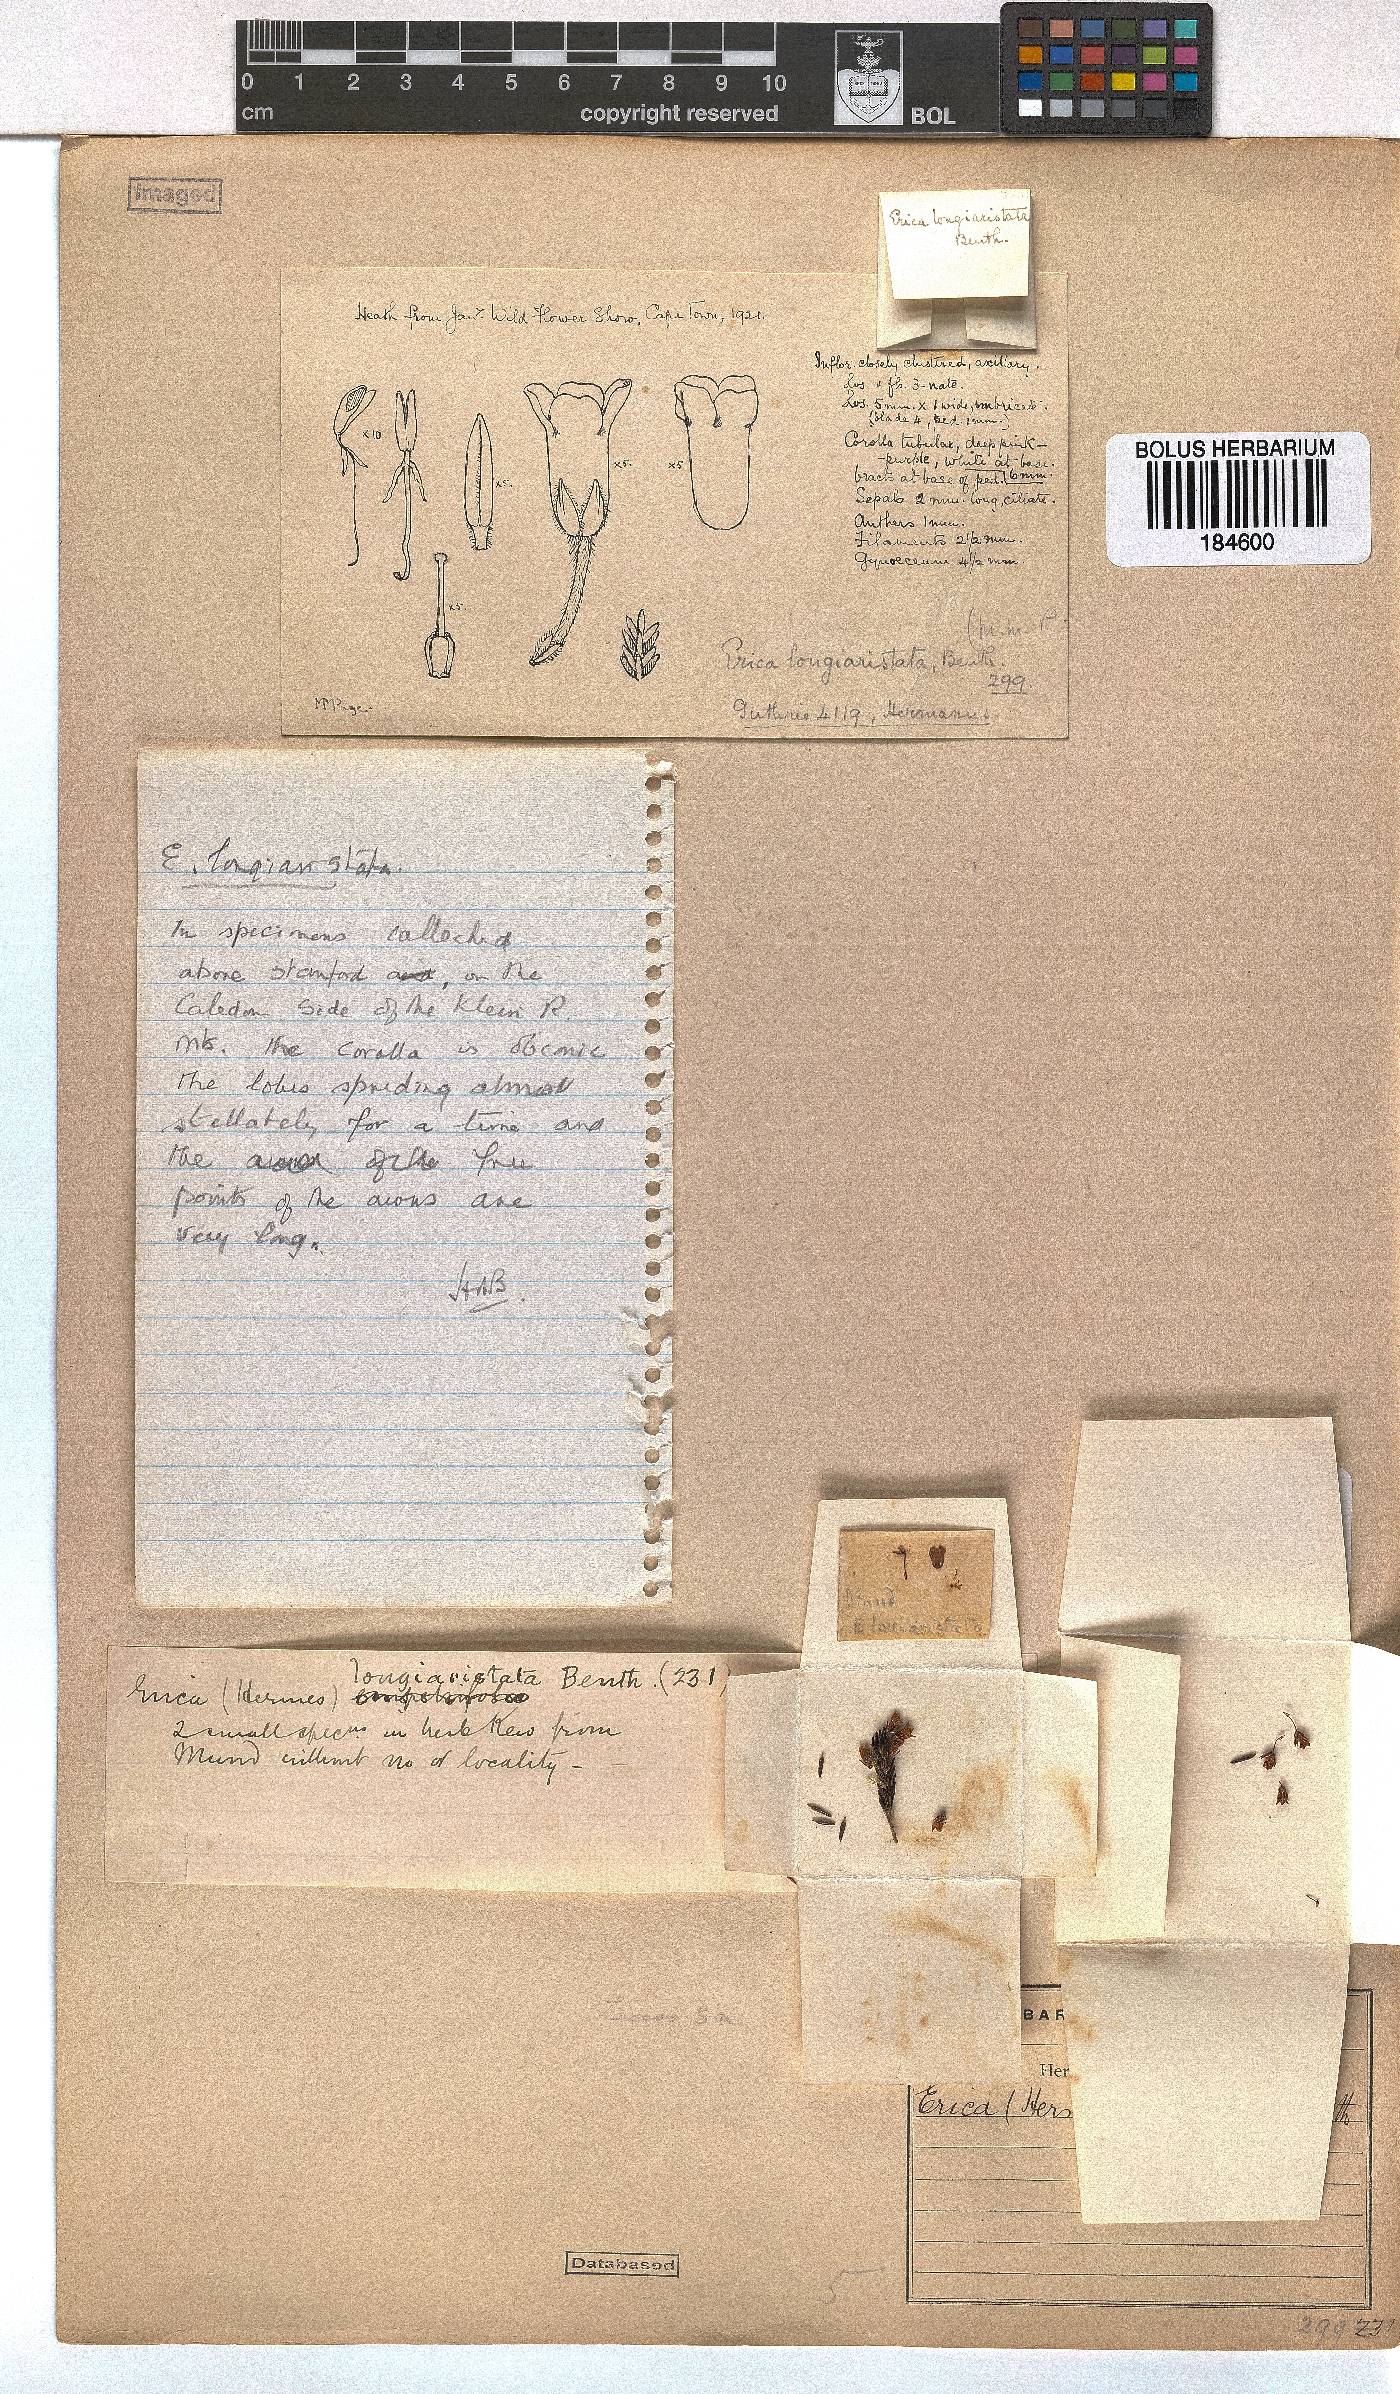 0 1 2 3 4 5 6 7 8 9 10
cm
copyright reserved
BOL
Imaged
Erica longiaristata
Benth.
Heath from Jany Wild Flower Show, Cape Town, 1921.
Inflor. closely clustered, axillary.
Lvs. & fls. 3-nate.
Lvs. 5 mm. x 1 wide, imbricate.
(blade 4, ped. 1mm.)
Corolla tubular, deep pink-
-purple, white at base.
bracts at base of ped. 6mm.
Sepals 2 mm. long, ciliate.
Anthers 1 mm.
Filaments 2½ mm.
Gynoecium 4½ mm.
x10
x5.
x5.
x5
x5.
BOLUS HERBARIUM
184600
Erica longiaristata, Benth.
299
Guthrie 4119, Hermanus
MM Page
E. longiaristata.
In specimens collected
above Stanford and, on the
Caledon side of the Klein R.
Mts. the corolla is obconic
the lobes spreding almost
stellately for a time and
the of the free
points of the awns are
very long.
HAB.
E longiaristata
Erica (Hermes) longiaristata Benth. (231)
2 small specns in herb Kew from
Mund without no or locality -
BAR
Her
Erica (Her
th
Databased
299 231